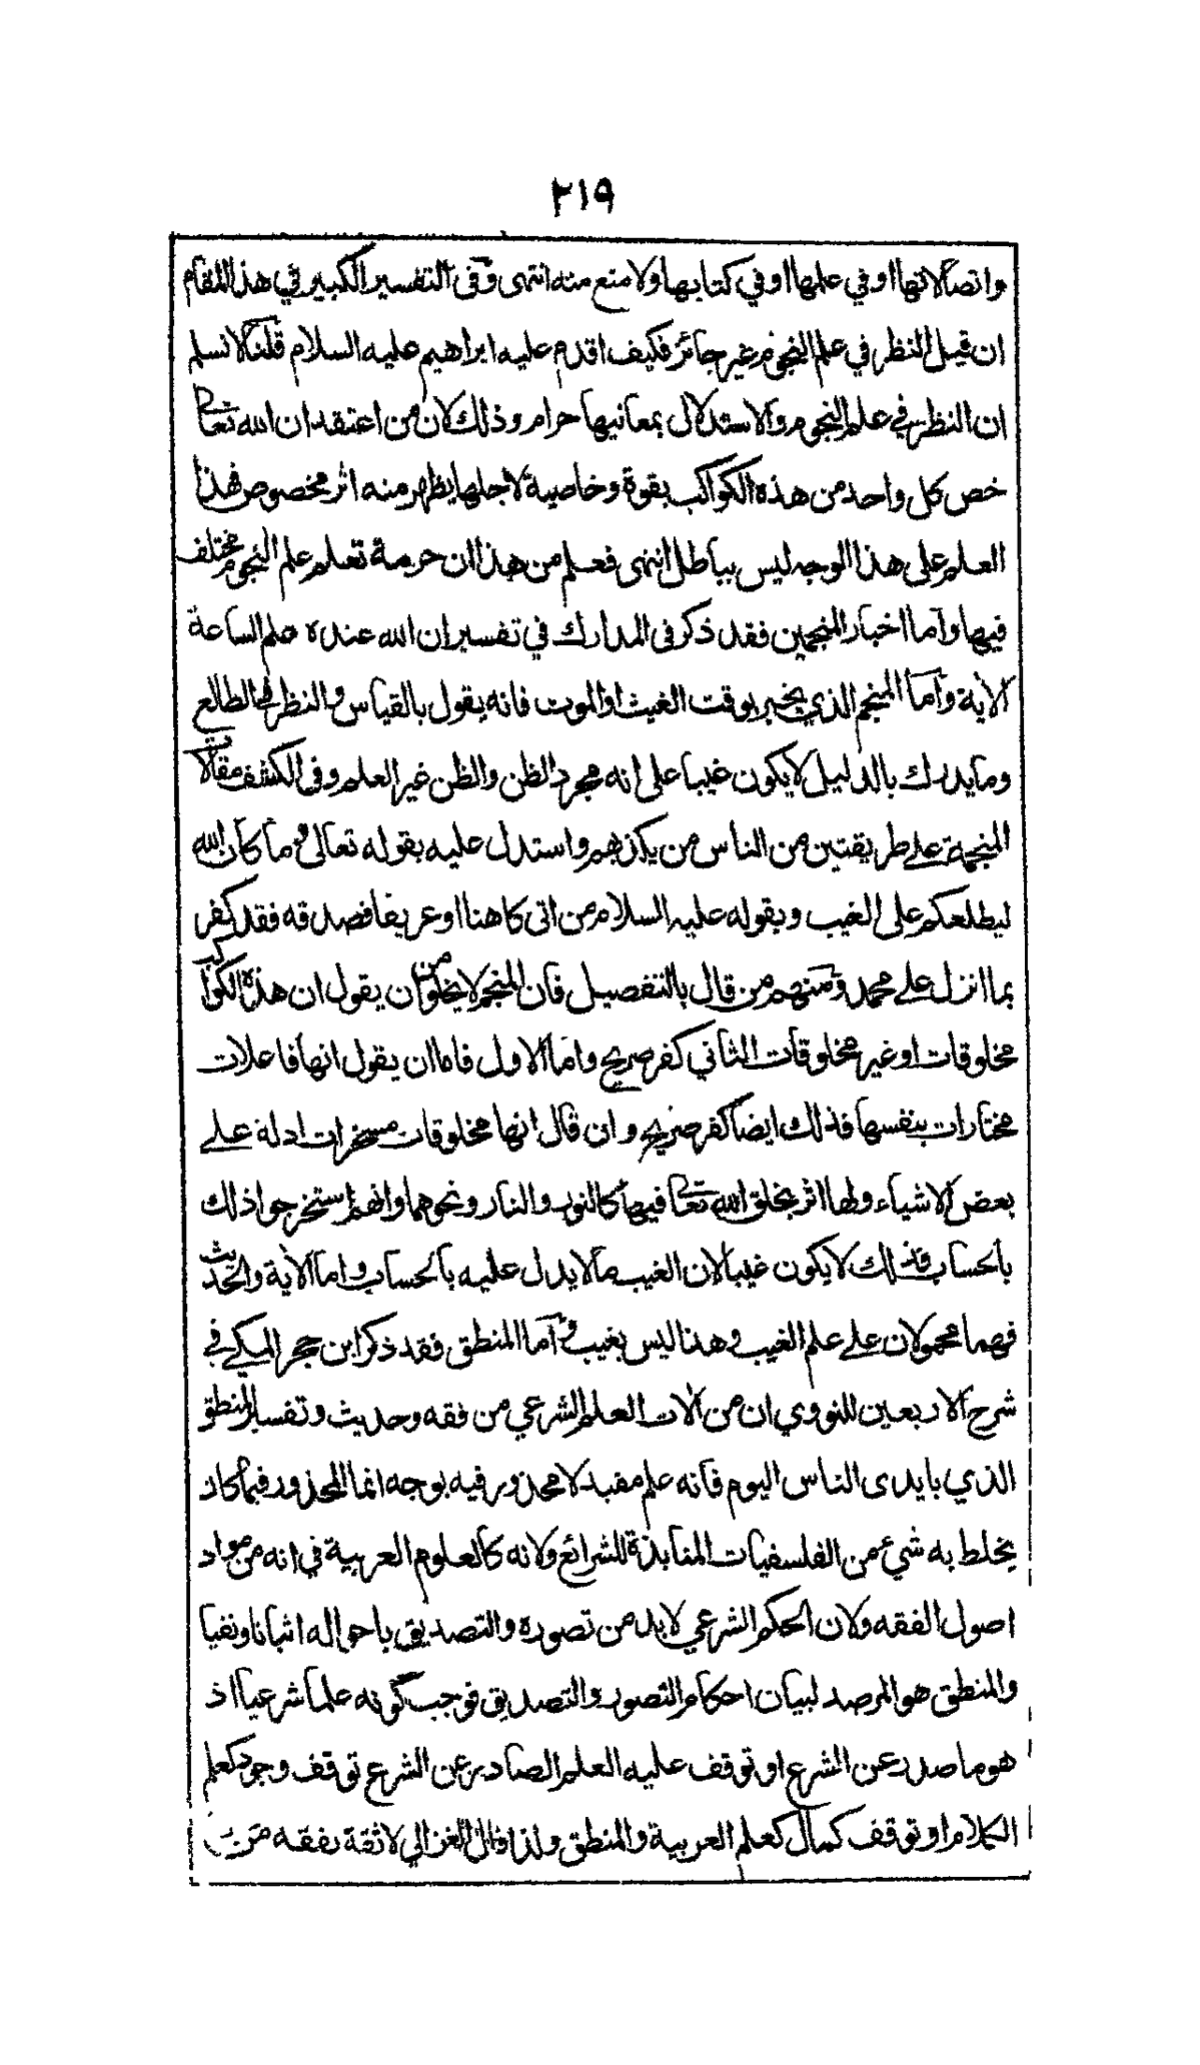 ٢١٩
واتصالاتها او في علمها او في كتابها ولا منع منه انتهى وفى التفسير الكبير في هذا المقام
ان قيل النظر في علم النجوم غير جائز فكيف اقدم عليه ابراهيم عليه السلام قلنا لا نسلم
ان النظر في علم النجوم والاستدلال بمعانيها حرام وذلك لان من اعتقد ان الله تعا
خص كل واحد من هذه الكواكب بقوة وخاصية لاجلها يظهر منه اثر مخصوص فهذا
العلم على هذا الوجه ليس بباطل انتهى فعلم من هذا ان حرمة تعلم علم النجوم مختلف
فيها واما اخبار المنجمين فقد ذكر فى المدارك في تفسير ان الله عنده علم الساعة
الآية واما المنجم الذي يخبر بوقت الغيث او الموت فانه يقول بالقياس والنظر في الطالع
وما يدرك بالدليل لا يكون غيبا على انه مجرد الظن والظن غير العلم وفى الكشف مقالات
المنجمة على طريقتين من الناس من يكذبهم واستدل عليه بقوله تعالى وما كان الله
ليطلعكم على الغيب وبقوله عليه السلام من اتى كاهنا او عريفا فصدقه فقد كفر
بما انزل على محمد ومنهم من قال بالتفصيل فان المنجم لا يخلو من ان يقول ان هذه الكواكب
مخلوقات او غير مخلوقات الثاني كفر صريح واما الاول فاما ان يقول انها فاعلات
مختارات بنفسها فذلك ايضا كفر صريح وان قال انها مخلوقات مسخرات ادلة على
بعض الاشياء ولها اثر بخلق الله تعا فيها كالنور والنار ونحوهما وانهم استخرجوا ذلك
بالحساب فذلك لا يكون غيبا لان الغيب ما لا يدل عليه بالحساب واما الآية والحديث
فهما محمولان على علم الغيب وهذا ليس بغيب واما المنطق فقد ذكر ابن حجر المكي في
شرح الاربعين للنووي ان من آلات العلم الشرعي من فقه وحديث وتفسير المنطق
الذي بايدى الناس اليوم فانه علم مفيد لا محذور فيه بوجه انما المحذور فيما كان
يخلط به شيء من الفلسفيات المنابذة للشرائع ولانه كالعلوم العربية في انه من مواد
اصول الفقه ولان الحكم الشرعي لابد من تصوره والتصديق باحواله اثباتا ونفيا
والمنطق هو المرصد لبيان احكام التصور والتصديق فوجب كونه علما شرعيا اذ
هو ما صدر عن الشرع او توقف عليه العلم الصادر عن الشرع توقف وجود كعلم
الكلام او توقف كمال كعلم العربية والمنطق ولذا قال الغزالي لا ثقة بفقه من